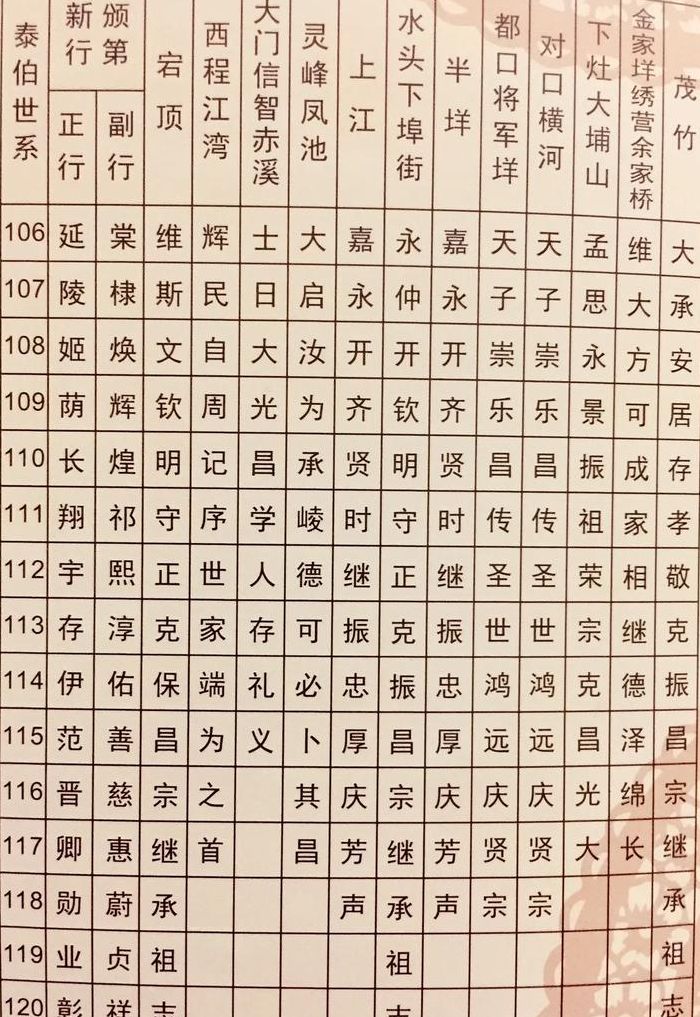 泰伯世系 新行 颁第 宕顶 西程江湾 大门信智赤溪 灵峰凤池 上江 水头下埠街 半垟 都口将军垟 对口横河 下灶大埔山 金家垟绣营余家桥 茂竹
正行 副行
106 延 棠 维 辉 士 大 嘉 永 嘉 天 天 孟 维 大
107 陵 棣 斯 民 日 启 永 仲 永 子 子 思 大 承
108 姬 焕 文 自 大 汝 开 开 开 崇 崇 永 方 安
109 荫 辉 钦 周 光 为 齐 钦 齐 乐 乐 景 可 居
110 长 煌 明 记 昌 承 贤 明 贤 昌 昌 振 成 存
111 翔 祁 守 序 学 崚 时 守 时 传 传 祖 家 孝
112 宇 熙 正 世 人 德 继 正 继 圣 圣 荣 相 敬
113 存 淳 克 家 存 可 振 克 振 世 世 宗 继 克
114 伊 佑 保 端 礼 必 忠 振 忠 鸿 鸿 克 德 振
115 范 善 昌 为 义 卜 厚 昌 厚 远 远 昌 泽 昌
116 晋 慈 宗 之 其 庆 宗 庆 庆 庆 光 绵 宗
117 卿 惠 继 首 昌 芳 继 芳 贤 贤 大 长 继
118 勋 蔚 承 声 承 声 宗 宗 承
119 业 贞 祖 祖 祖
120 彰 祥 志 志 志